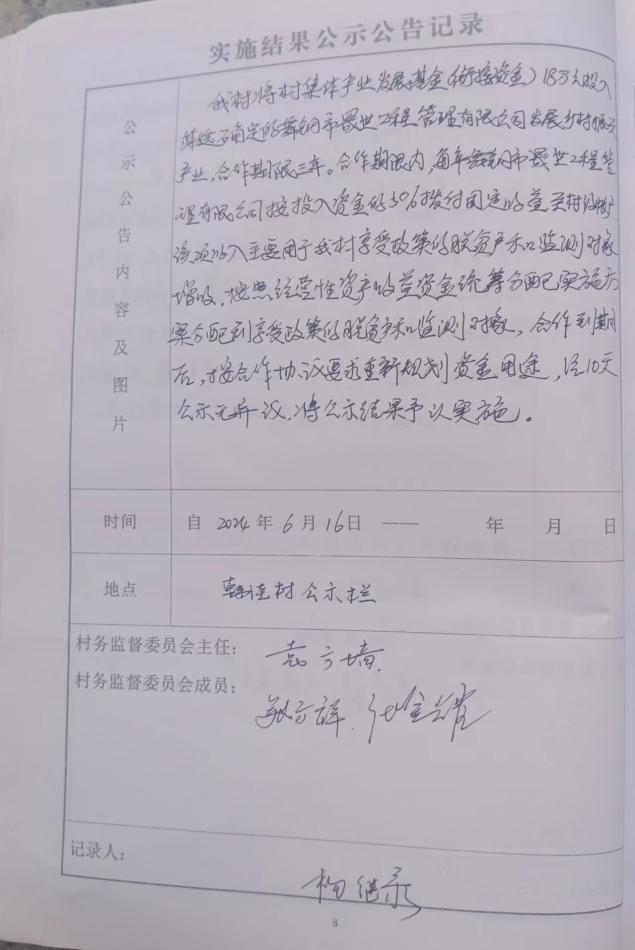 实施结果公示公告记录
公示公告内容及图片
我村将村集体产业发展基金(衔接资金)18万元投入
确定的舞钢市晟业工程管理有限公司发展乡村振兴
产业,合作期限三年。合作期限内,每年舞钢市晟业工程管
理有限公司按投入资金的5%拨付固定收益至村级账户
该项收入主要用于我村享受政策的脱贫户和监测对象
增收,按照经营性资产收益资金统筹分配实施方
案分配到享受政策的脱贫户和监测对象,合作到期
后,按合作协议要求重新规划资金用途,经10天
公示无异议,将公示结果予以实施。
时间 自 2024 年 6 月 16 日 —— 年 月 日
地点 村公示栏
村务监督委员会主任: 袁
村务监督委员会成员:
记录人:
继录
8